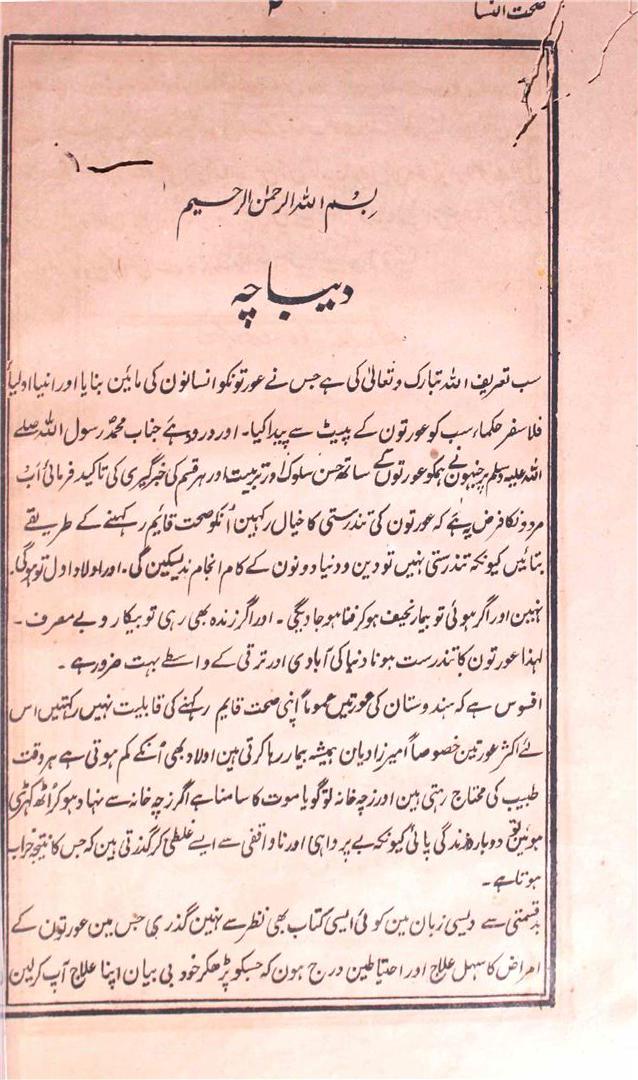 صحت النسا ۲
بسم اللہ الرحمٰن الرحیم
دیباچہ
سب تعریف اللہ تبارک و تعالیٰ کی ہے جس نے عورتونکو انسانون کی مائین بنایا اور انبیا اولیا
فلاسفر حکماء سب کو عورتون کے پیٹ سے پیدا کیا۔ اور درود ہے جناب محمد رسول اللہ صلے
اللہ علیہ وسلم پر جنہون نے ہمکو عورتوں کے ساتھ حسن سلوک اور تربیت اور ہر قسم کی خبر گیری کی تاکید فرمائی اب
مردونکا فرض ہے کہ عورتون کی تندرستی کا خیال رکہین اُنکو صحت قایم رکہنے کے طریقے
بتائیں کیونکہ تندرستی نہیں تو دین و دنیا دونون کے کام انجام ندیسکین گی۔ اور اولاد اول تو ہوگی
نہین اور اگر ہوئی تو بیمار نحیف ہوکر فنا ہو جاویگی۔ اور اگر زندہ بھی رہی تو بیکار و بے مصرف۔
لہذا عورتون کا تندرست ہونا دنیا کی آبادی اور ترقی کے واسطے بہت ضرور ہے۔
افسوس ہے کہ ہندوستان کی عورتیں عموماً اپنی صحت قایم رکہنے کی قابلیت نہیں رکہتیں اس
لئے اکثر عورتین خصوصاً امیرزادیان ہمیشہ بیمار رہا کرتی ہین اولاد بھی اُنکے کم ہوتی ہے ہر وقت
طبیب کی محتاج رہتی ہین اور زچہ خانہ تو گویا موت کا سامنا ہے اگر زچہ خانہ سے نہا دہو کر اُٹھ کہڑی
ہوئین تو دوبارہ زندگی پائی کیونکہ بے پرواہی اور ناواقفی سے ایسے غلطی اکر گذرتی ہین کہ جس کا نتیجہ خراب
ہوتا ہے۔
بدقسمتی سے دیسی زبان مین کوئی ایسی کتاب بھی نظر سے نہین گذری جس مین عورتون کے
امراض کا سہل علاج اور احتیاطین درج ہون کہ جسکو پڑھکر خود بی بیان اپنا علاج آپ کرلین